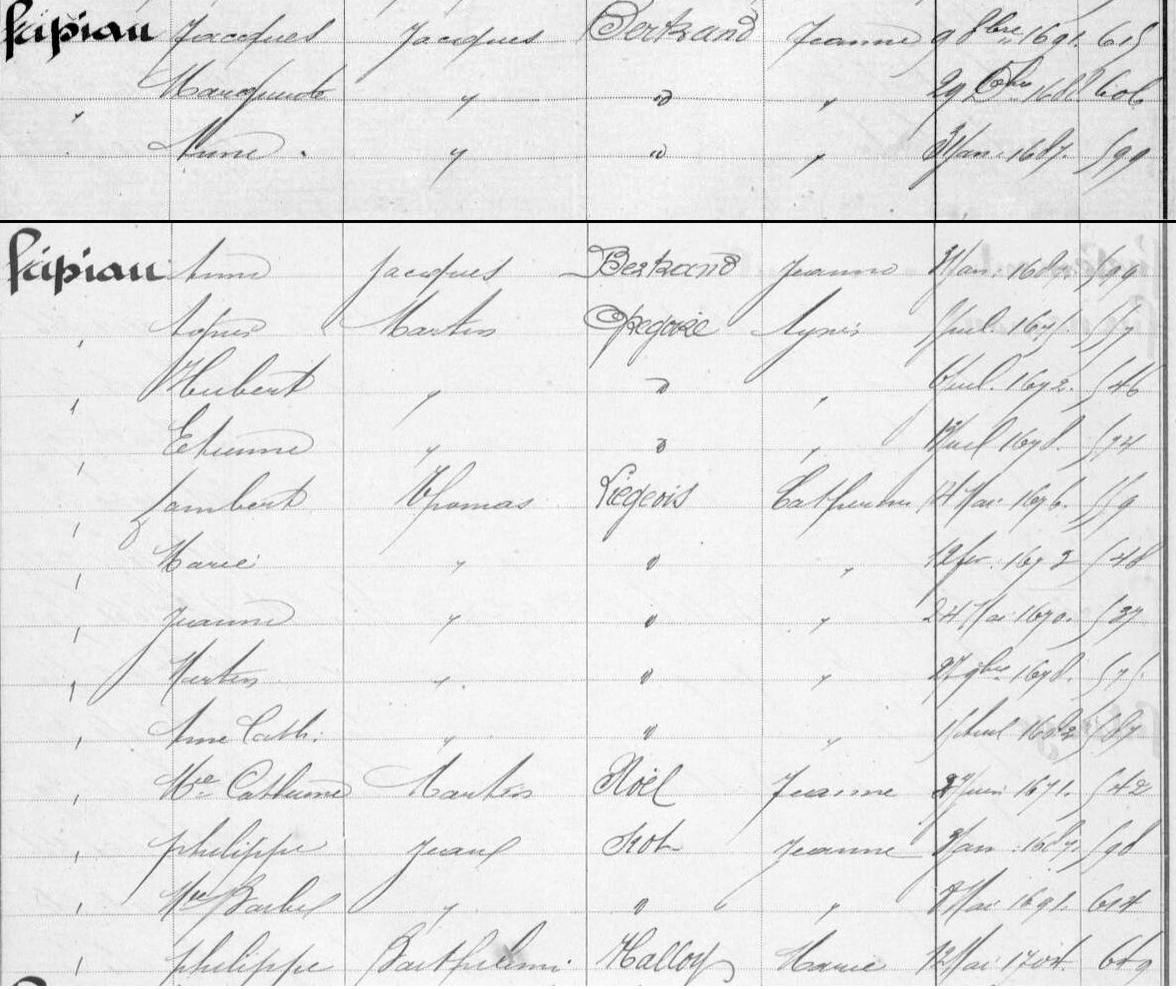 Scipiau Jacques Jacques Bertrand Jeanne 9 8bre 1691. 615
" Marguerite " " " 29 Xbre 1688 606
" Anne " " " 31 Jan. 1687. 599
Scipiau Anne Jacques Bertrand Jeanne 31 Jan. 1687. 599
" Agnes Martin Gregoire Agnes 1671. 537
" Hubert " " " 6 Juil. 1672. 546
" Etienne " " " 1678. 574
" Lambert Thomas Liegeois Catherine 14 Mai 1676. 559
" Marie " " " 12 fev. 1672 548
" Jeanne " " " 24 Mai 1670. 537
" Martin " " " 27 9bre 1678. 575
" Anne Cath. " " " 1682 587
" Mie Catherine Martin Noël Jeanne 1671. 542
" philippe Jean Kot Jeanne Jan. 1687. 598
" Mie Barbe " " " Mai 1691. 614
" philippe Barthelemi Halloy Marie 12 Mai 1704. 649